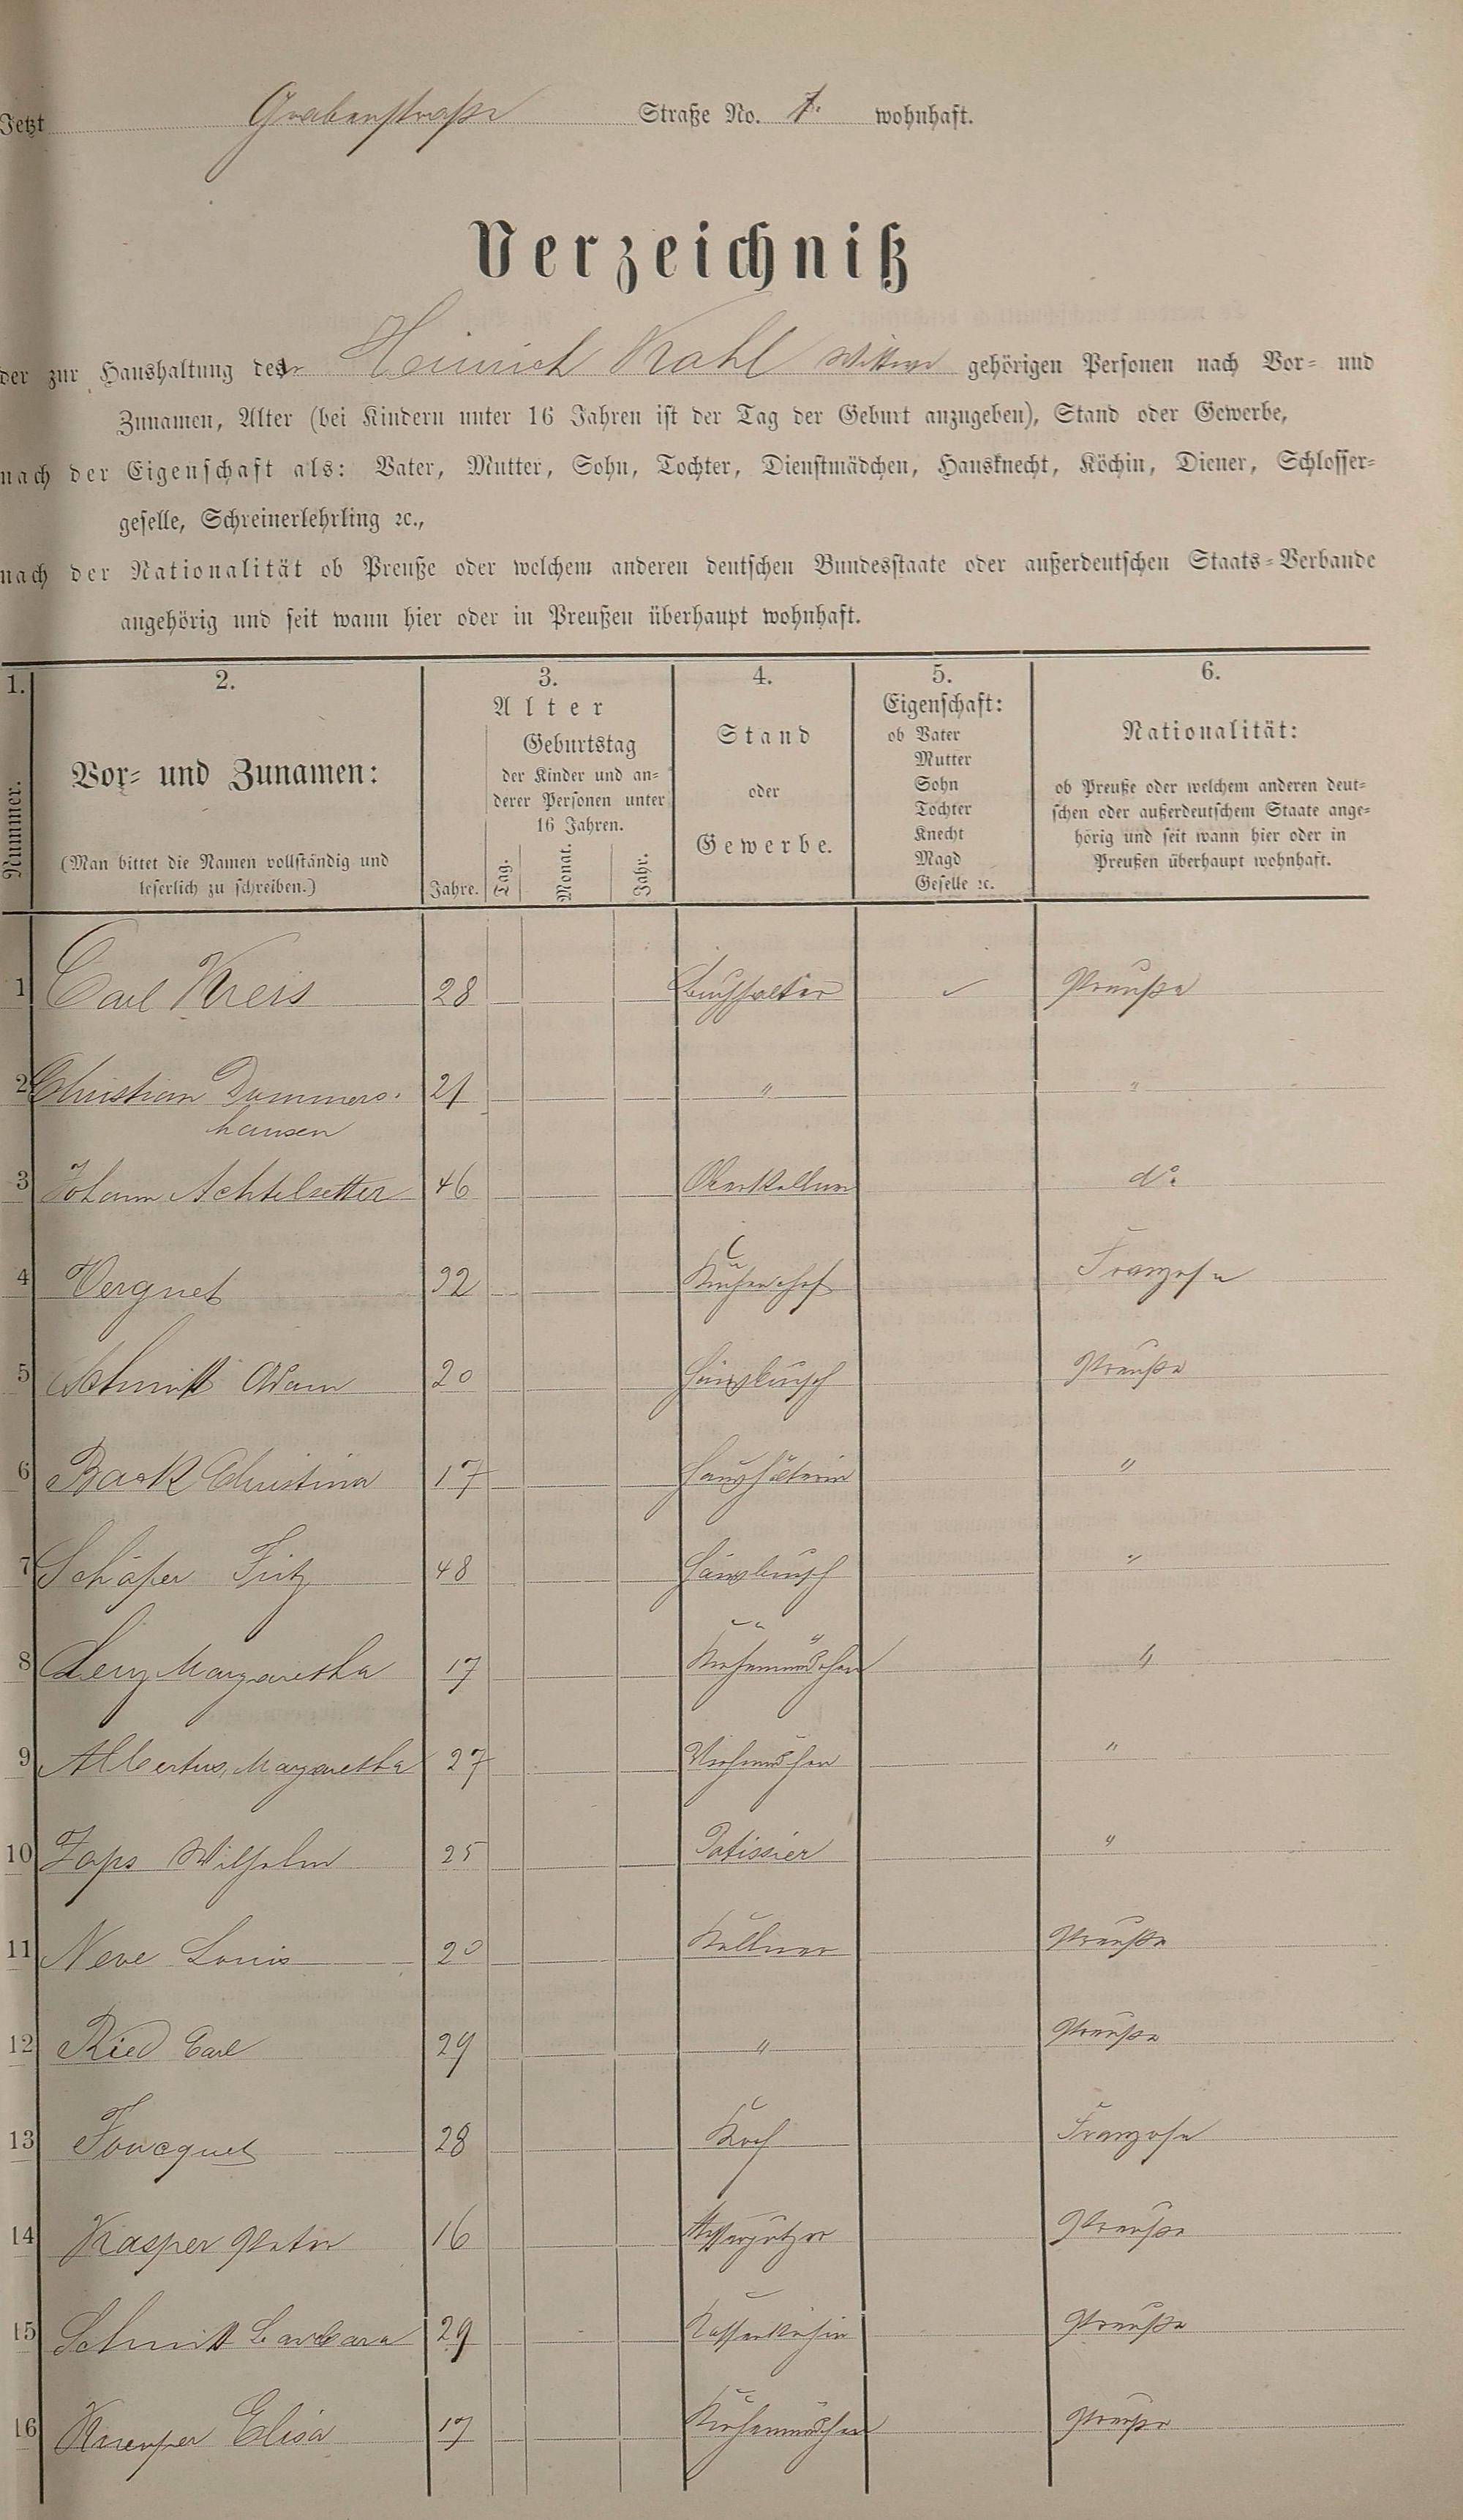 Jetzt Grabenstraße Straße No. 7. wohnhaft.
Verzeichniß
der zur Haushaltung der Heinrich Kahl Wittwe gehörigen Personen nach Vor- und
Zunamen, Alter (bei Kindern unter 16 Jahren ist der Tag der Geburt anzugeben), Stand oder Gewerbe,
nach der Eigenschaft als: Vater, Mutter, Sohn, Tochter, Dienstmädchen, Hausknecht, Köchin, Diener, Schlosser-
geselle, Schreinerlehrling ꝛc.,
nach der Nationalität ob Preuße oder welchem anderen deutschen Bundesstaate oder außerdeutschen Staats-Verbande
angehörig und seit wann hier oder in Preußen überhaupt wohnhaft.
1. 2. 3. 4. 5. 6.
Nummer.
Vor- und Zunamen:
(Man bittet die Namen vollständig und
leserlich zu schreiben.)
Alter
Jahre.
Geburtstag
der Kinder und an-
derer Personen unter
16 Jahren.
Tag. Monat. Jahr.
Stand
oder
Gewerbe.
Eigenschaft:
ob Vater
Mutter
Sohn
Tochter
Knecht
Magd
Geselle ꝛc.
Nationalität:
ob Preuße oder welchem anderen deut-
schen oder außerdeutschem Staate ange-
hörig und seit wann hier oder in
Preußen überhaupt wohnhaft.
1 Carl Kreis 28 Buchhalter Preuße
2 Christian Dommers- 21 " "
hausen
3 Johann Achtelsetter 46 Oberkellner do
4 Vergnet 32 Küchenchef Franzose
5 Schmitt Adam 20 Hausbursch Preuße
6 Back Christina 17 Haushälterin "
7 Schäfer Fritz 48 Hausbursch "
8 Lenz Margaretha 17 Küchenmädchen "
9 Albertus, Margaretha 27 "
10 Zaps Wilhelm 25 Patissier "
11 Neve Louis 20 Kellner Preuße
12 Ried Carl 29 " Preuße
13 Foucquet 28 Koch Franzose
14 Kasper Peter 16 Messerputzer Preuße
15 Schmitt Barbara 29 Kaffeeköchin Preuße
16 Elisa 17 Küchenmädchen Preuße